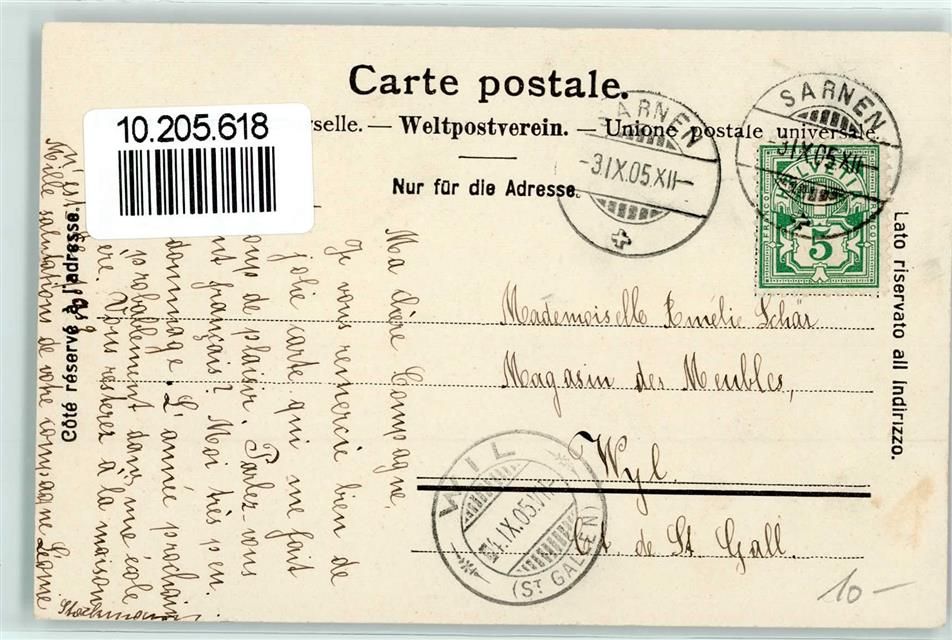 Carte postale.
10.205.618
rselle. — Weltpostverein. — Unione postale universale.
Nur für die Adresse.
Côté réservé à l'adresse.
Lato riservato all indirizzo.
SARNEN
-3.IX.05.XII-
SARNEN
-3.IX.05.XII-
HELVETIA
FRANCO
5
Mademoiselle Emélie Schär
Magasin des Meubles,
Wyl.
Ct. de St. Gall.
WIL
-4.IX.05.VII-
(ST GALLEN)
Ma chère Compagne.
Je vous remercie bien de
jolie carte qui me fait
coup de plaisir. Parlez-vous
nt français? Moi très peu.
dommage. L'année prochain
probablement dans une école
ère. Vous resterez à la maison
Mille salutations de votre compagne Léonie
Stockmann
10-